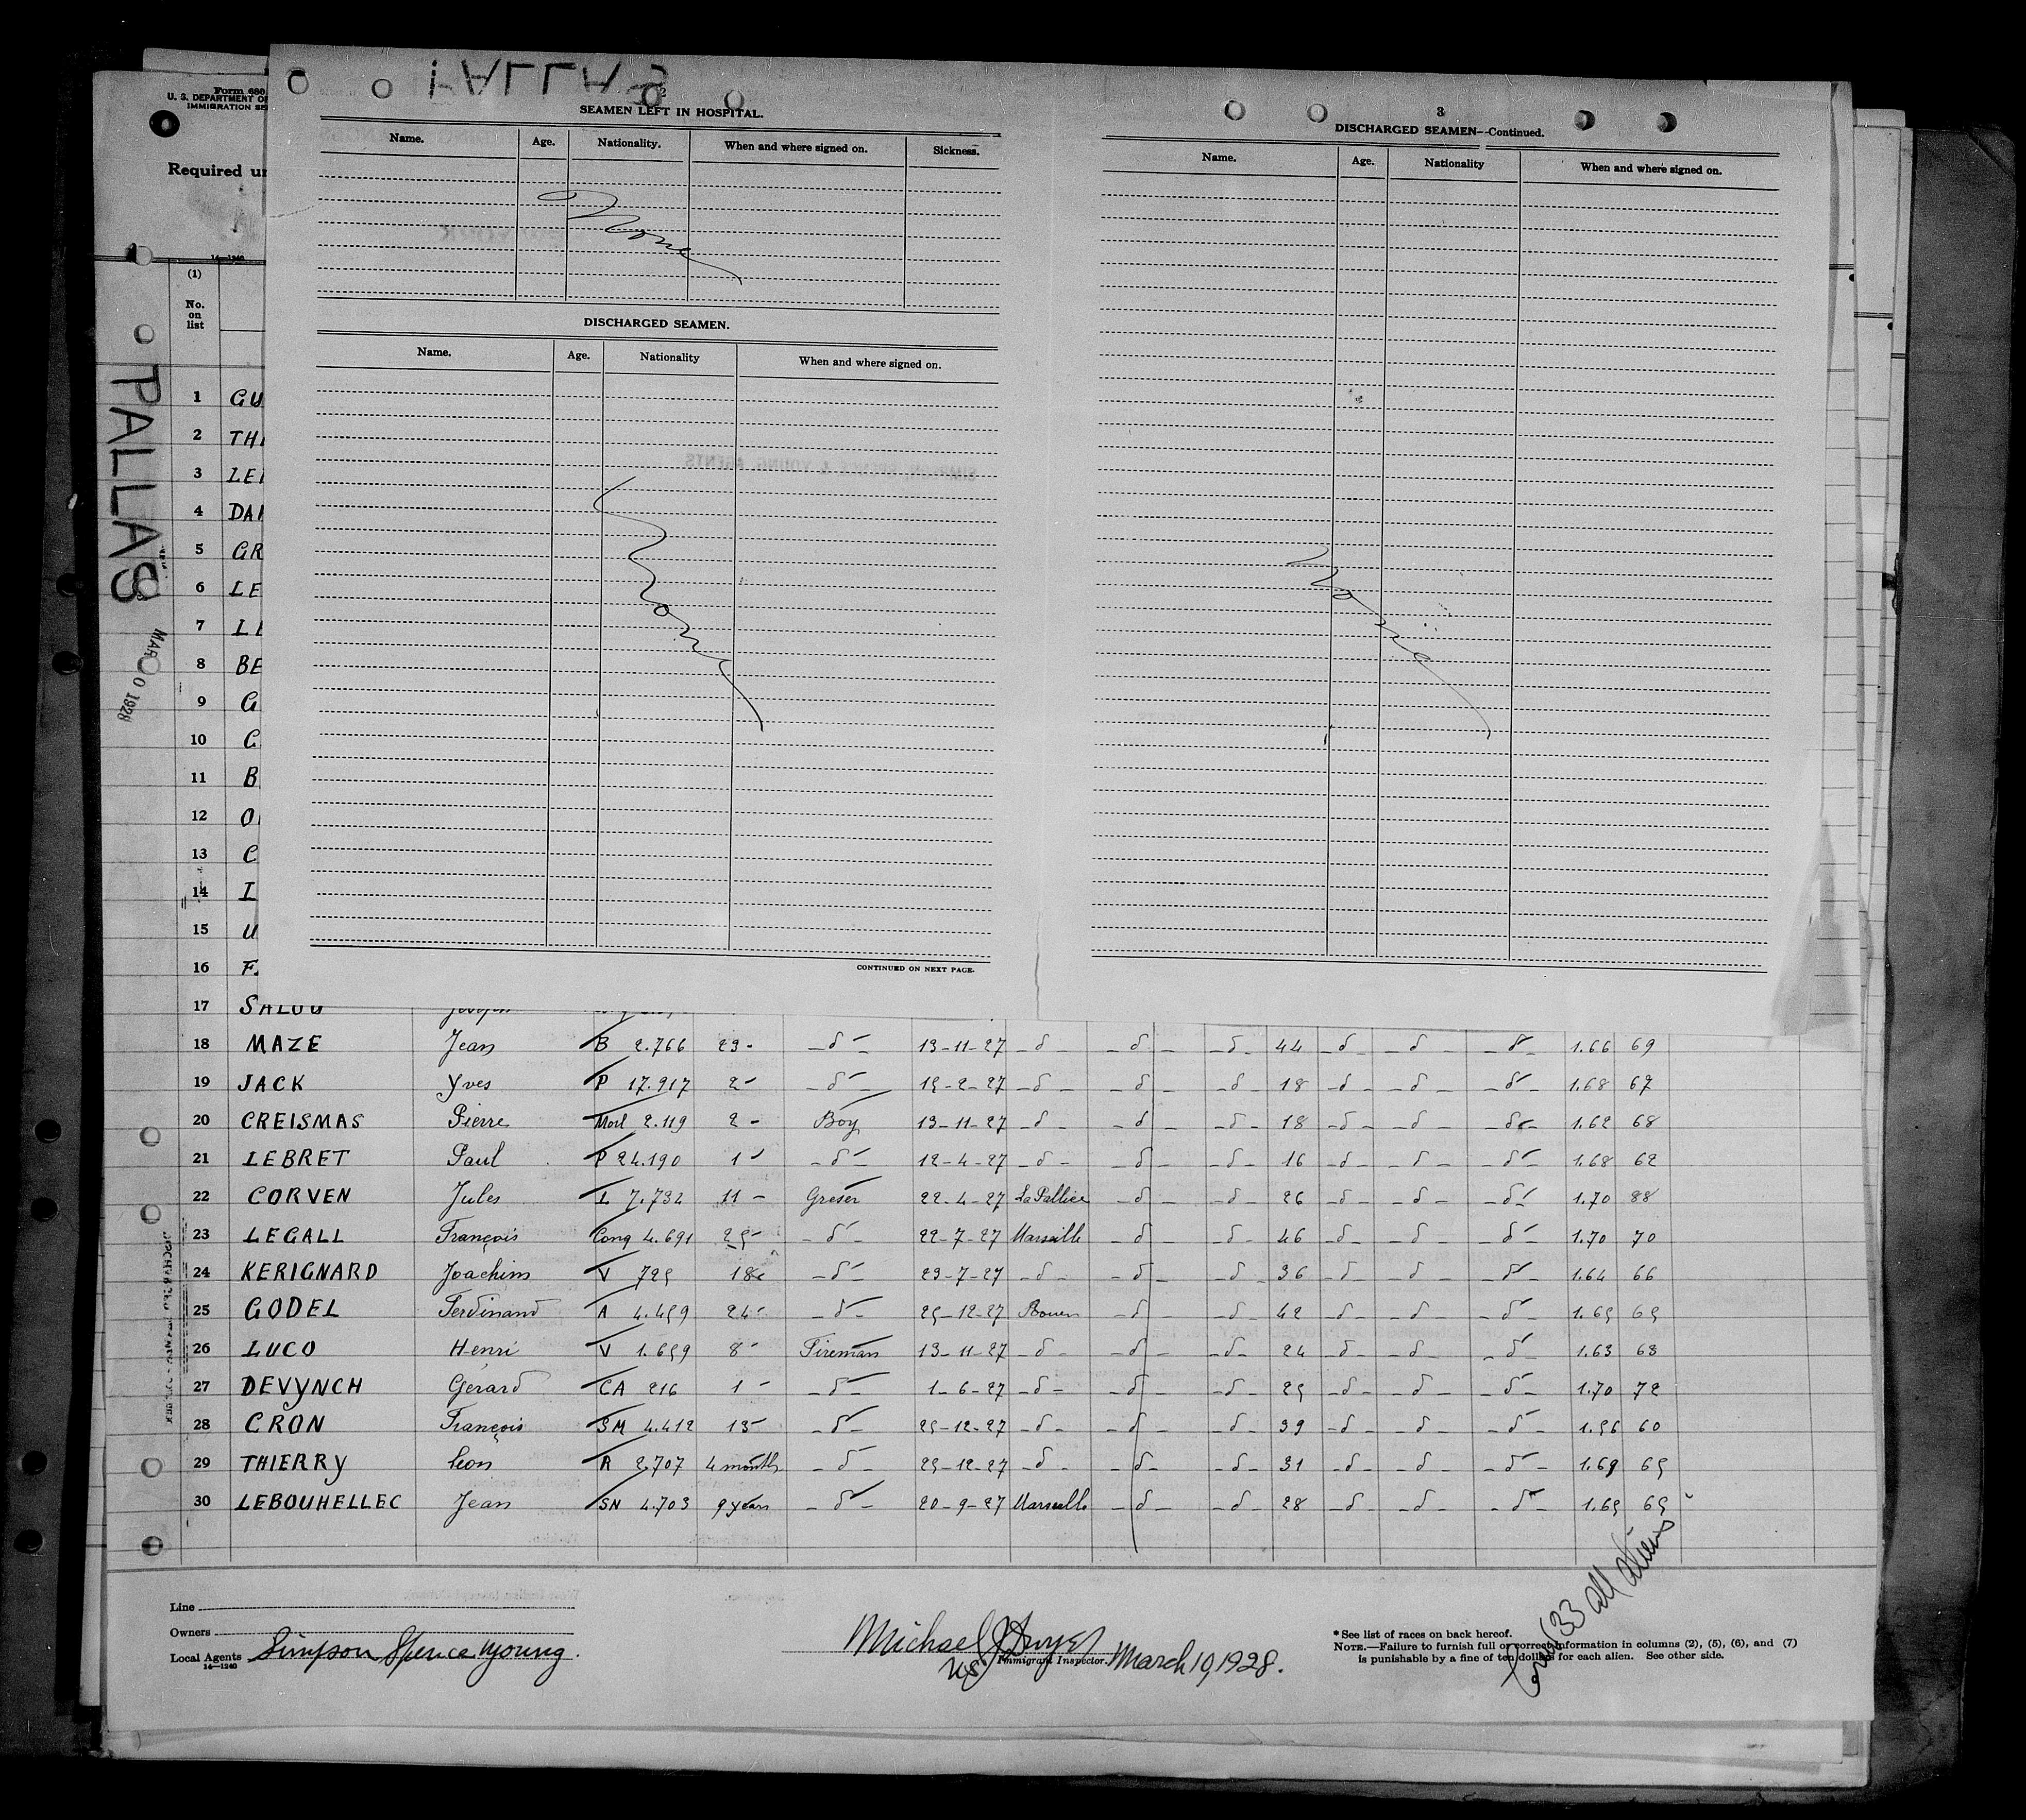 PALLAS
2
SEAMEN LEFT IN HOSPITAL.
Name. Age. Nationality. When and where signed on. Sickness.
None
DISCHARGED SEAMEN.
Name. Age. Nationality When and where signed on.
None
CONTINUED ON NEXT PAGE.
3
DISCHARGED SEAMEN—Continued.
Name. Age. Nationality When and where signed on.
None
Form 680
U. S. DEPARTMENT OF
IMMIGRATION SE
Required un
14—1240
(1)
No. on list
PALLAS
MAR 0 1928
1 GU
2 TH
3 LE
4 DA
5 GR
6 LE
7 LE
8 BE
9 G
10 C
11 B
12 O
13 C
14 I
15 U
16 F
17 SALOU Joseph
18 MAZE Jean B 2.766 23 - -d- 13-11-27 -d- -d- -d- 44 -d- -d- -d- 1.66 69
19 JACK Yves P 17.917 2 - -d- 15-2-27 -d- -d- -d- 18 -d- -d- -d- 1.68 67
20 CREISMAS Pierre Morl 2.119 2 - Boy 13-11-27 -d- -d- -d- 18 -d- -d- -d- 1.62 68
21 LEBRET Paul P 24.190 1 - -d- 12-4-27 -d- -d- -d- 16 -d- -d- -d- 1.68 62
22 CORVEN Jules L 7.732 11 - Greser 22-4-27 La Pallice -d- -d- 26 -d- -d- -d- 1.70 88
23 LEGALL François Conq 4.691 25 - -d- 22-7-27 Marseille -d- -d- 46 -d- -d- -d- 1.70 70
24 KERIGNARD Joachim V 725 18 -d- 23-7-27 -d- -d- -d- 36 -d- -d- -d- 1.64 66
25 GODEL Ferdinand A 4.459 24 - -d- 25-12-27 Rouen -d- -d- 42 -d- -d- -d- 1.65 65
26 LUCO Henri V 1.659 8 - Fireman 13-11-27 -d- -d- -d- 24 -d- -d- -d- 1.63 68
27 DEVYNCH Gerard CA 216 1 - -d- 1-6-27 -d- -d- -d- 25 -d- -d- -d- 1.70 72
28 CRON François SM 4.412 13 - -d- 25-12-27 -d- -d- -d- 39 -d- -d- -d- 1.56 60
29 THIERRY Léon R 2.707 4 month -d- 25-12-27 -d- -d- -d- 31 -d- -d- -d- 1.69 65
30 LEBOUHELLEC Jean SN 4.703 9 years -d- 20-9-27 Marseille -d- -d- 28 -d- -d- -d- 1.65 65
Line
Owners
Local Agents Simpson Spence Young.
14—1240
Michael J Dwyer
Immigrant Inspector. March 10, 1928.
* See list of races on back hereof.
NOTE.—Failure to furnish full or correct information in columns (2), (5), (6), and (7)
is punishable by a fine of ten dollars for each alien. See other side.
Crew 33 all aliens